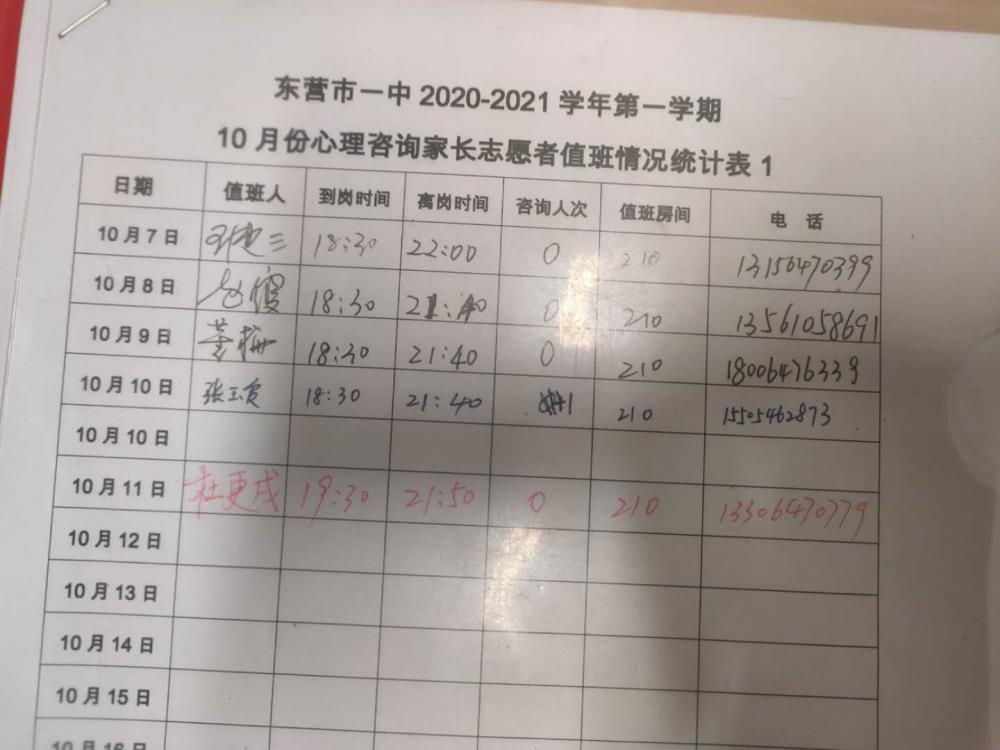 东营市一中 2020-2021 学年第一学期
10 月份心理咨询家长志愿者值班情况统计表 1
日期 值班人 到岗时间 离岗时间 咨询人次 值班房间 电 话
10 月 7 日 18:30 22:00 0 210 13156470399
10 月 8 日 18:30 21:40 0 210 13561058691
10 月 9 日 董梅 18:30 21:40 0 210 18006476339
10 月 10 日 张玉霞 18:30 21:40 1 210 15505462873
10 月 10 日
10 月 11 日 杜更成 19:30 21:50 0 210 13306470779
10 月 12 日
10 月 13 日
10 月 14 日
10 月 15 日
10 月 16 日